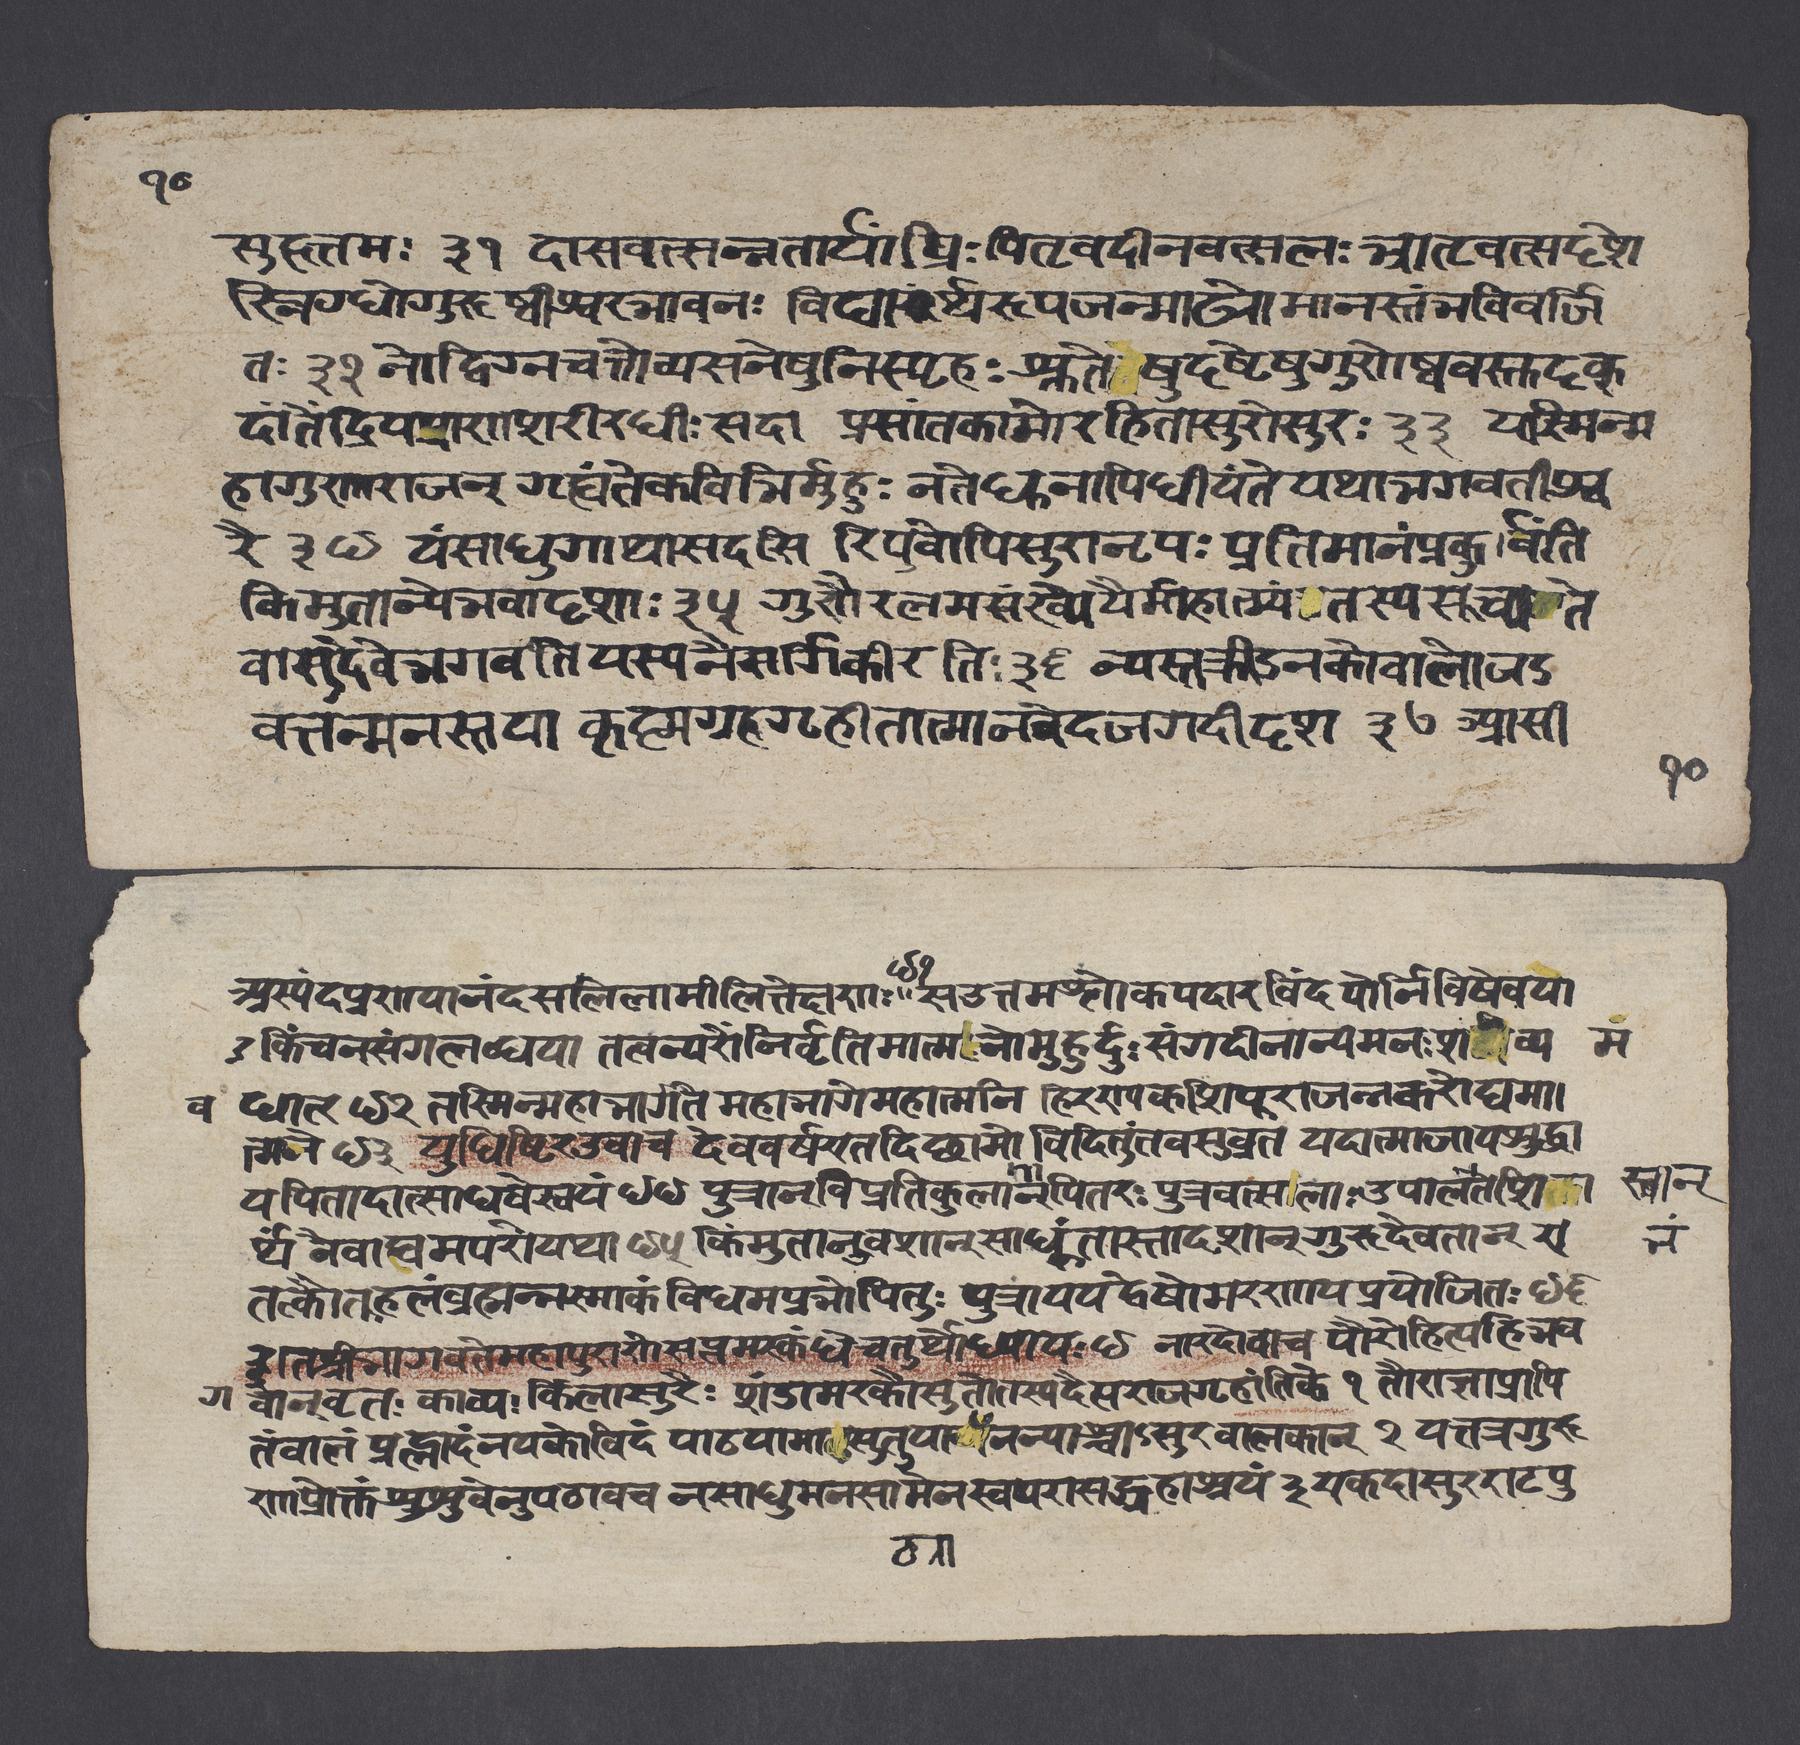 १०
सुहृत्तमः ३१ दासवत्सन्नतार्यांघ्रिः पितृवदीनवत्सलः भ्रातृवत्सदृशे
स्निग्धोगुरूष्वीश्वरभावनः विद्या र्थरूपजन्माढ्योमानस्तंभविवर्जि
तः ३२ नोद्विग्नचत्तोव्यसनेषुनिस्पृहः श्रुतेषुदृष्टेषुगुणेष्ववस्तुदृक्
दांतेंद्रियप्राणशरीरधीः सदा प्रसांतकामोरहितासुरोसुरः ३३ यस्मिन्म
हागुणाराजन् गृह्यंतेकविभिर्मुहुः नतेधुनापिधीयंतेयथाभगवतीश्व
रे ३४ यंसाधुगाथासदसि रिपवोपिसुरानृपः प्रतिमानंप्रकुर्वंति
किमुतान्येभवादृशाः ३५ गुणैरलमसंख्येयैर्माहात्म्यंतस्यसूच्यते
वासुदेवेभगवतियस्यनैसर्गिकीरतिः ३६ न्यस्तक्रीडनकोवालोजड
वत्तन्मनस्तया कृष्णग्रहगृहीतात्मानवेदजगदीदृश ३७ आसी
१०
४१
अस्पंदप्रणयानंदसलिलामीलितेक्षणः " सउत्तमश्लोकपदारविंदयोर्निविषेवया
ऽकिंचनसंगलब्धया तत्वन्परांनिर्वृतिमात्मनोमुहुर्दुः संगदीनान्यमनः श व्य मं
व धात् ४२ तस्मिन्महाभागवते महाभागेमहात्मनि हिरण्यकशिपूराजन्नकरोदघमा।
त्मजे ४३ युधिष्ठिरउवाच देवर्षएतदिच्छामो विदितुंतवसुव्रत यदात्माजायशुद्धा
यपितादात्साधवेह्यघं ४४ पुत्रान्विप्रतिकुलान्स्वान्पितरः पुत्रवत्सलाः उपालंतेशि स्वान्
र्थं नैवाघमपरोयथा ४५ किंमुतानुवशान्साधूंतास्तादृशान्गुरूदेवतान् ए नं
तत्कौतूहलंब्रह्मन्नस्माकं विधमप्रभो पितुः पुत्राययद्वेषोमरणायप्रयोजितः ४६
इतिश्रीभागवतेमहापुराणेसप्तमस्कंधेचतुर्थोध्यायः ४ नारदोवाच पौरोहित्यहिभव
ग वान्वृतः काव्यः किलासुरैः शंडामरकौसुतौतस्यदैसराजगृहांतिके १ तौराज्ञाप्रापि
तंवालं प्रह्लादंनयकोविदं पाठयामासतुपा नन्याश्चाऽसुरवालकान् २ यत्तत्रगुरू
णाप्रोक्तंशुश्रुवेनुपठावच नसाधुमनसामेनेस्वपरासद्ग्रहाश्रयं ३ एकदासुरराटपु